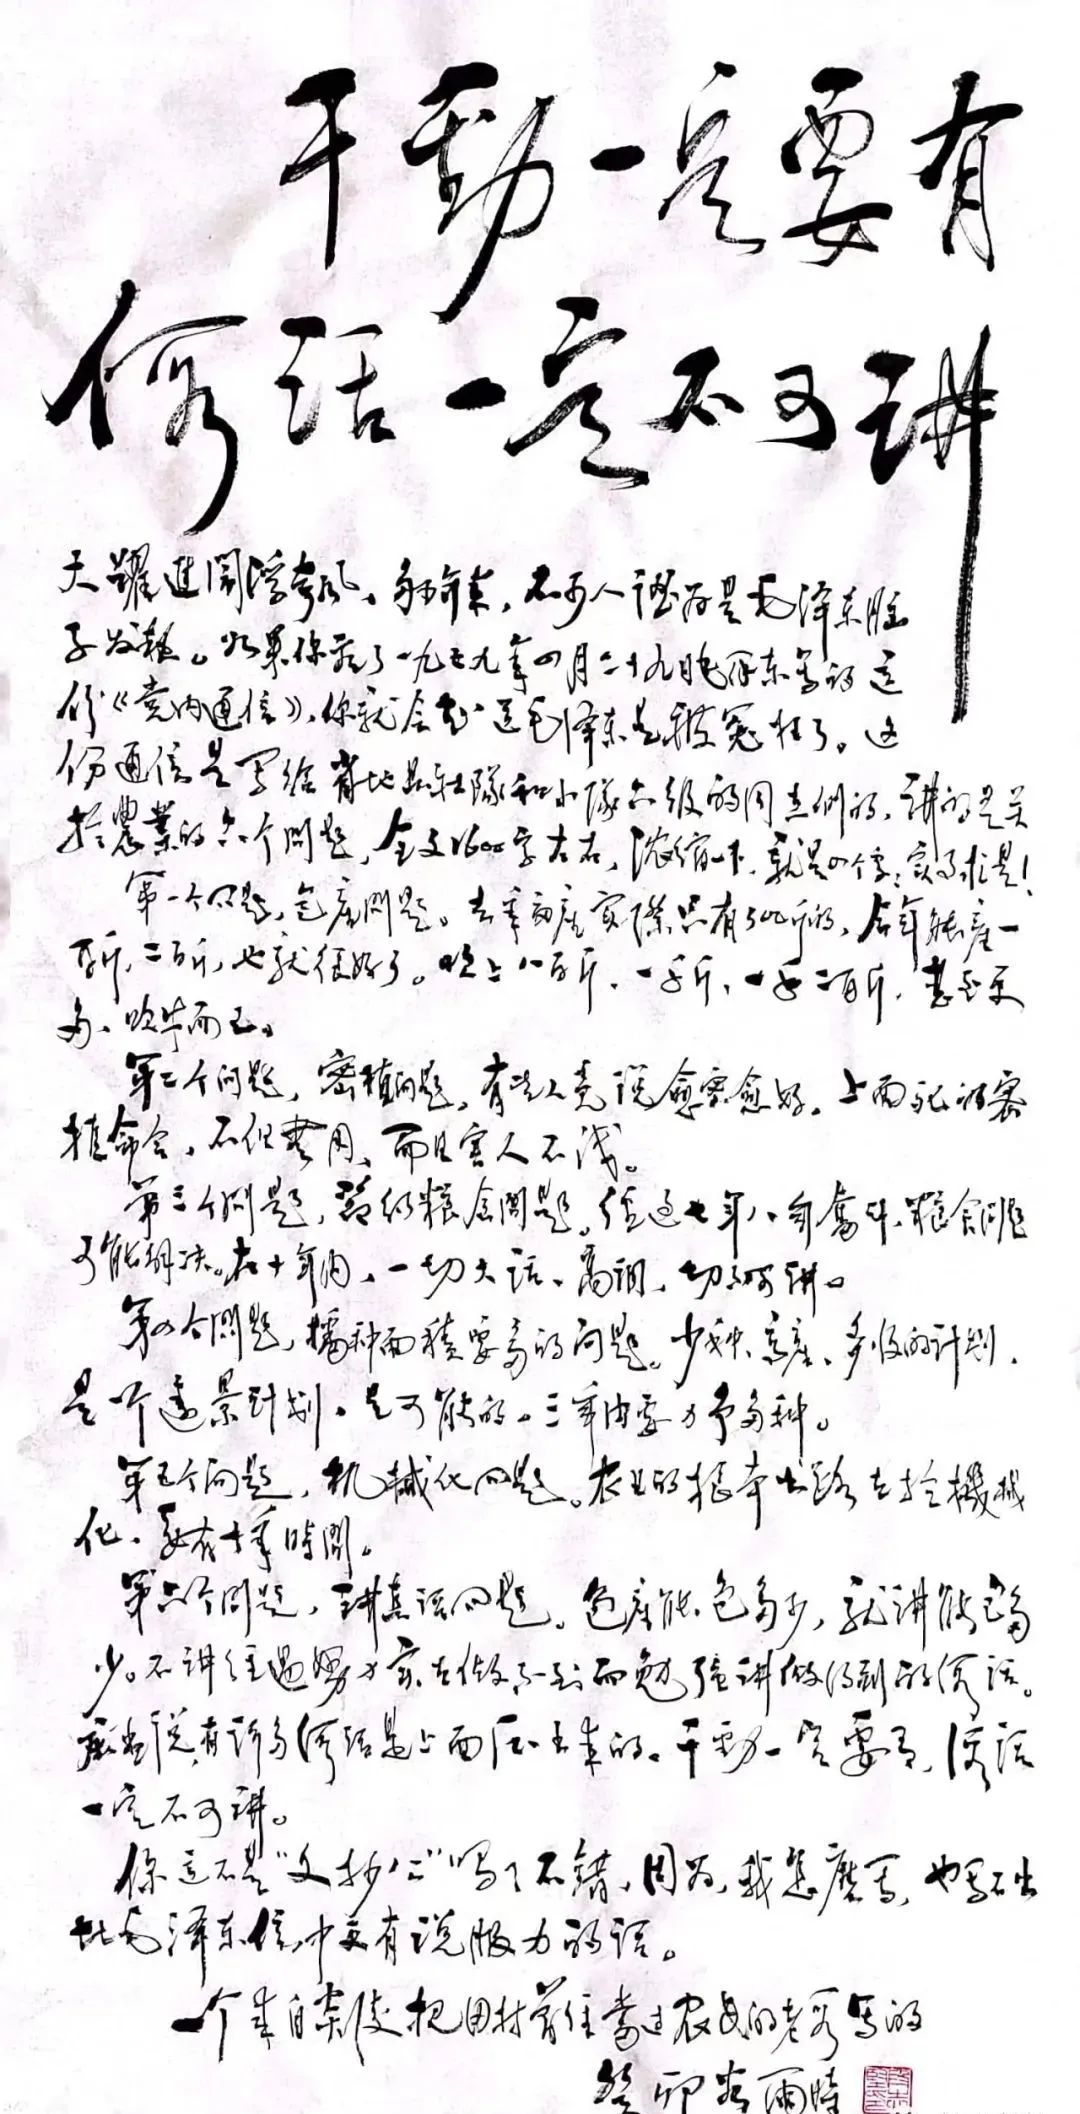 干劲一定要有
假话一定不可讲
大跃进闹浮夸风，多少年来，不少人认为是毛泽东脑
子发热。如果你看了一九五九年四月二十九日毛泽东写的这
份《党内通信》，你就会知道毛泽东是被冤枉了。这
份通信是写给省地县社隊和小隊六级的同志們的，讲的是关
於農業的六个問题，全文1600字左右，浓缩一下，就是四个字：实事求是！
第一个问题，包産問题。去年亩産实際只有三百斤的，今年能産一
百斤，二百斤，也就很好了。吹上八百斤，一千斤，一千二百斤，甚至更
多，吹牛而已。
第二个问题，密植问题，有些人竟说愈密愈好。上面死的密
植命令，不但無用，而且害人不浅。
第三个問题，节约粮食問题。经过七年八年奮斗，粮食问题
可能解决。在十年内，一切大话、高调，切不可讲。
第四个問题，播种面積要多的问题。少种、高産、多收的计划，
是个遠景计划，是可能的。三年内要力争多种。
第五个问题，机械化问题。农业的根本出路在於機械
化，要有十年時間。
第六个问题，讲真话问题。包産能包多少，就讲能包多
少。不讲经过努力实在做不到而勉强讲做得到的假话。
应当说，有许多假话是上面压出来的。干劲一定要有，假话
一定不可讲。
你这不是“文抄公”吗？不错，因为，我怎麽写，也写不出
比毛泽东信中更有说服力的话。
一个来自 把田村 农民的老 写的
癸卯 爾時